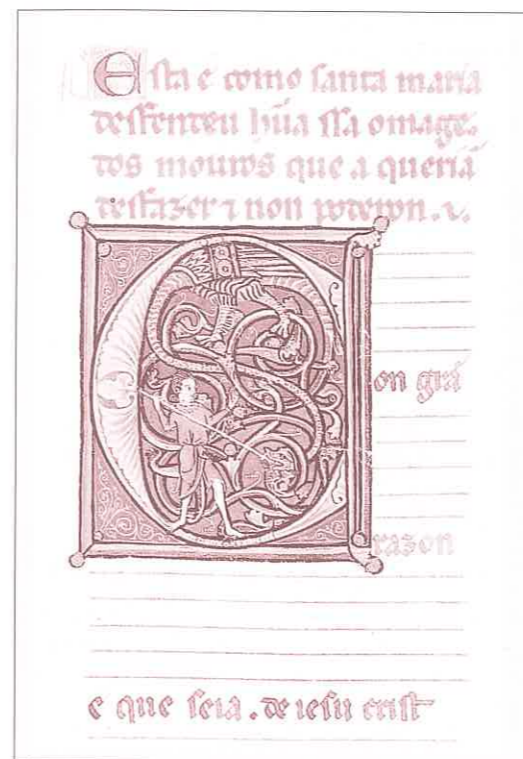 Esta e como santa maria
deffendeu hũa ssa omage.
dos mouros que a queriã
desfazer ⁊ non poderon.
Con grã
razon
e que seia. de iesu crist